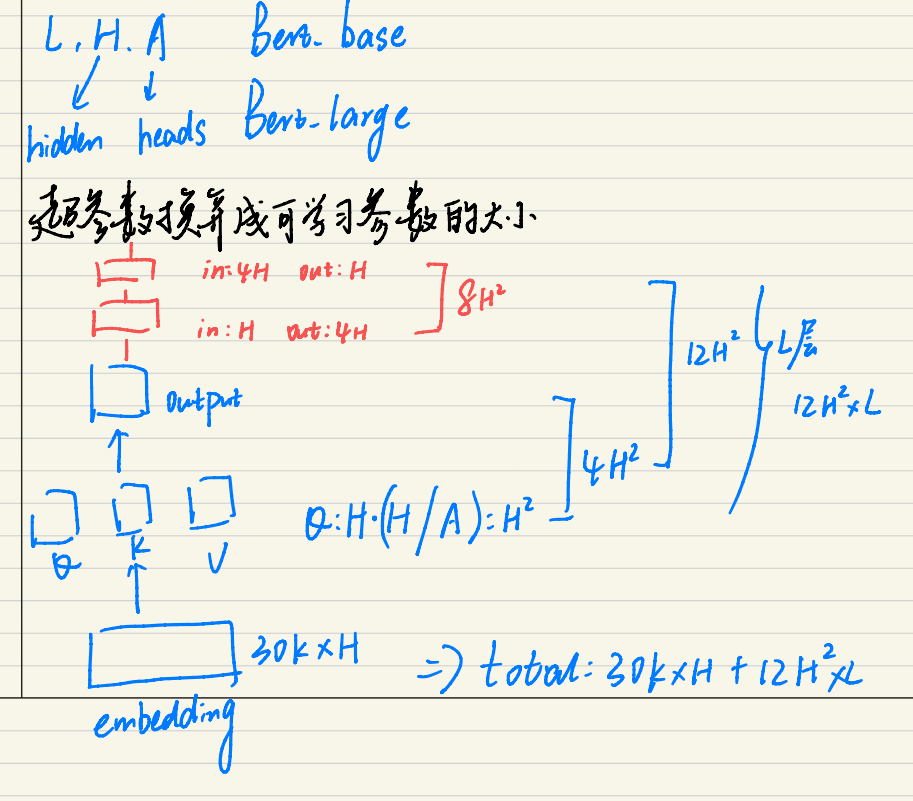 L. H. A Bert-base
hidden heads Bert-large
超参数换算成可学习参数的大小
in:4H out:H
8H²
in:H out:4H
12H²
L层
output
12H²×L
4H²
Q:H·(H/A)=H²
Q K V
30k×H
=> total: 30k×H + 12H²×L
embedding